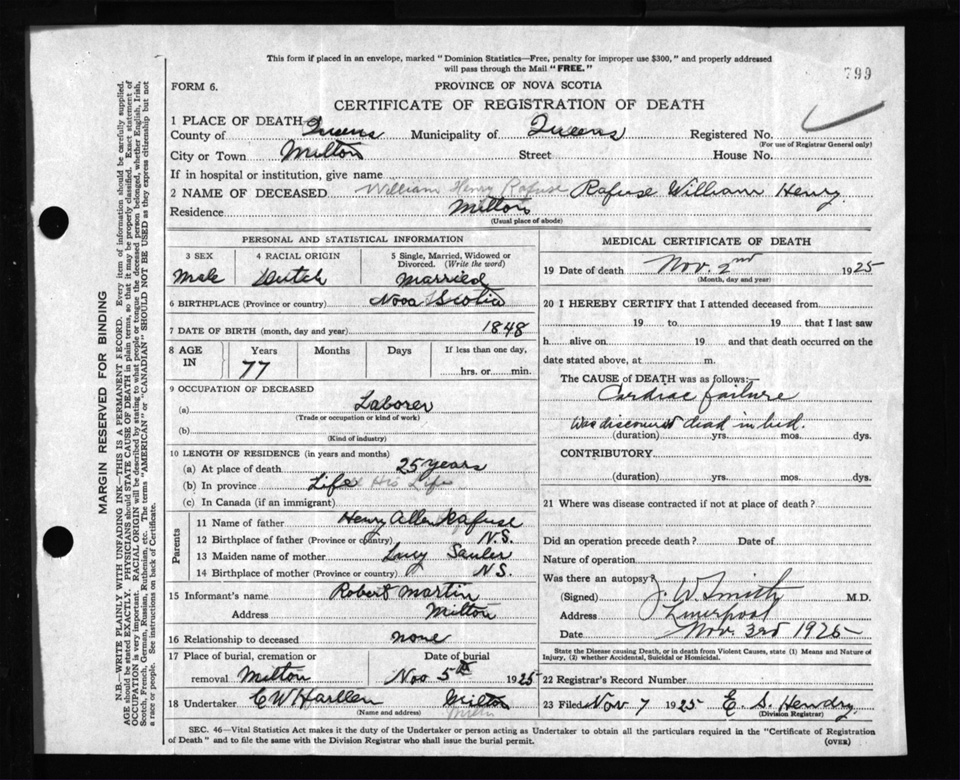 This form if placed in an envelope, marked "Dominion Statistics—Free, penalty for improper use $300," and properly addressed
will pass through the Mail "FREE."
799
FORM 6.
PROVINCE OF NOVA SCOTIA
CERTIFICATE OF REGISTRATION OF DEATH
1 PLACE OF DEATH
County of Queens Municipality of Queens Registered No.
(For use of Registrar General only)
City or Town Milton Street House No.
If in hospital or institution, give name
2 NAME OF DECEASED William Henry Rafuse Rafuse William Henry
Residence Milton
(Usual place of abode)
PERSONAL AND STATISTICAL INFORMATION
3 SEX Male
4 RACIAL ORIGIN Dutch
5 Single, Married, Widowed or
Divorced. (Write the word)
Married
6 BIRTHPLACE (Province or country) Nova Scotia
7 DATE OF BIRTH (month, day and year) 1848
8 AGE IN Years Months Days If less than one day,
77 hrs. or min.
9 OCCUPATION OF DECEASED
(a) Laborer
(Trade or occupation or kind of work)
(b)
(Kind of industry)
10 LENGTH OF RESIDENCE (in years and months)
(a) At place of death 25 years
(b) In province Life His Life
(c) In Canada (if an immigrant)
Parents
11 Name of father Henry Allen Rafuse
12 Birthplace of father (Province or country) N.S.
13 Maiden name of mother Lucy
14 Birthplace of mother (Province or country) N.S.
15 Informant's name Robert Martin
Address Milton
16 Relationship to deceased none
17 Place of burial, cremation or Date of burial
removal Milton Nov 5th 1925
18 Undertaker C W Milton
(Name and address)
MEDICAL CERTIFICATE OF DEATH
19 Date of death Nov. 2nd 1925
(Month, day and year)
20 I HEREBY CERTIFY that I attended deceased from
19 to 19 that I last saw
h alive on 19 and that death occurred on the
date stated above, at m.
The CAUSE of DEATH was as follows:—
Cardiac failure
Was discovered dead in bed.
(duration) yrs. mos. dys.
CONTRIBUTORY
(duration) yrs. mos. dys.
21 Where was disease contracted if not at place of death?
Did an operation precede death? Date of
Nature of operation
Was there an autopsy?
(Signed) J. W. Smith M.D.
Address Liverpool
Date Nov. 3rd 1925
State the Disease causing Death, or in death from Violent Causes, state (1) Means and Nature of
Injury, (2) whether Accidental, Suicidal or Homicidal.
22 Registrar's Record Number
23 Filed Nov 7 1925 E. S. Hendry
(Division Registrar)
SEC. 46—Vital Statistics Act makes it the duty of the Undertaker or person acting as Undertaker to obtain all the particulars required in the "Certificate of Registration
of Death" and to file the same with the Division Registrar who shall issue the burial permit.
(OVER)
MARGIN RESERVED FOR BINDING
N.B.—WRITE PLAINLY WITH UNFADING INK—THIS IS A PERMANENT RECORD. Every item of information should be carefully supplied.
AGE should be stated EXACTLY. PHYSICIANS should STATE CAUSE OF DEATH in plain terms, so that it may be properly classified. Exact statement of
OCCUPATION is very important. RACIAL ORIGIN will be described by stating to what people or tongue the deceased person belonged, whether English, Irish,
Scotch, French, German, Russian, Ruthenian, etc. The terms "AMERICAN" or "CANADIAN" SHOULD NOT BE USED as they express citizenship but not
a race or people. See instructions on back of Certificate.